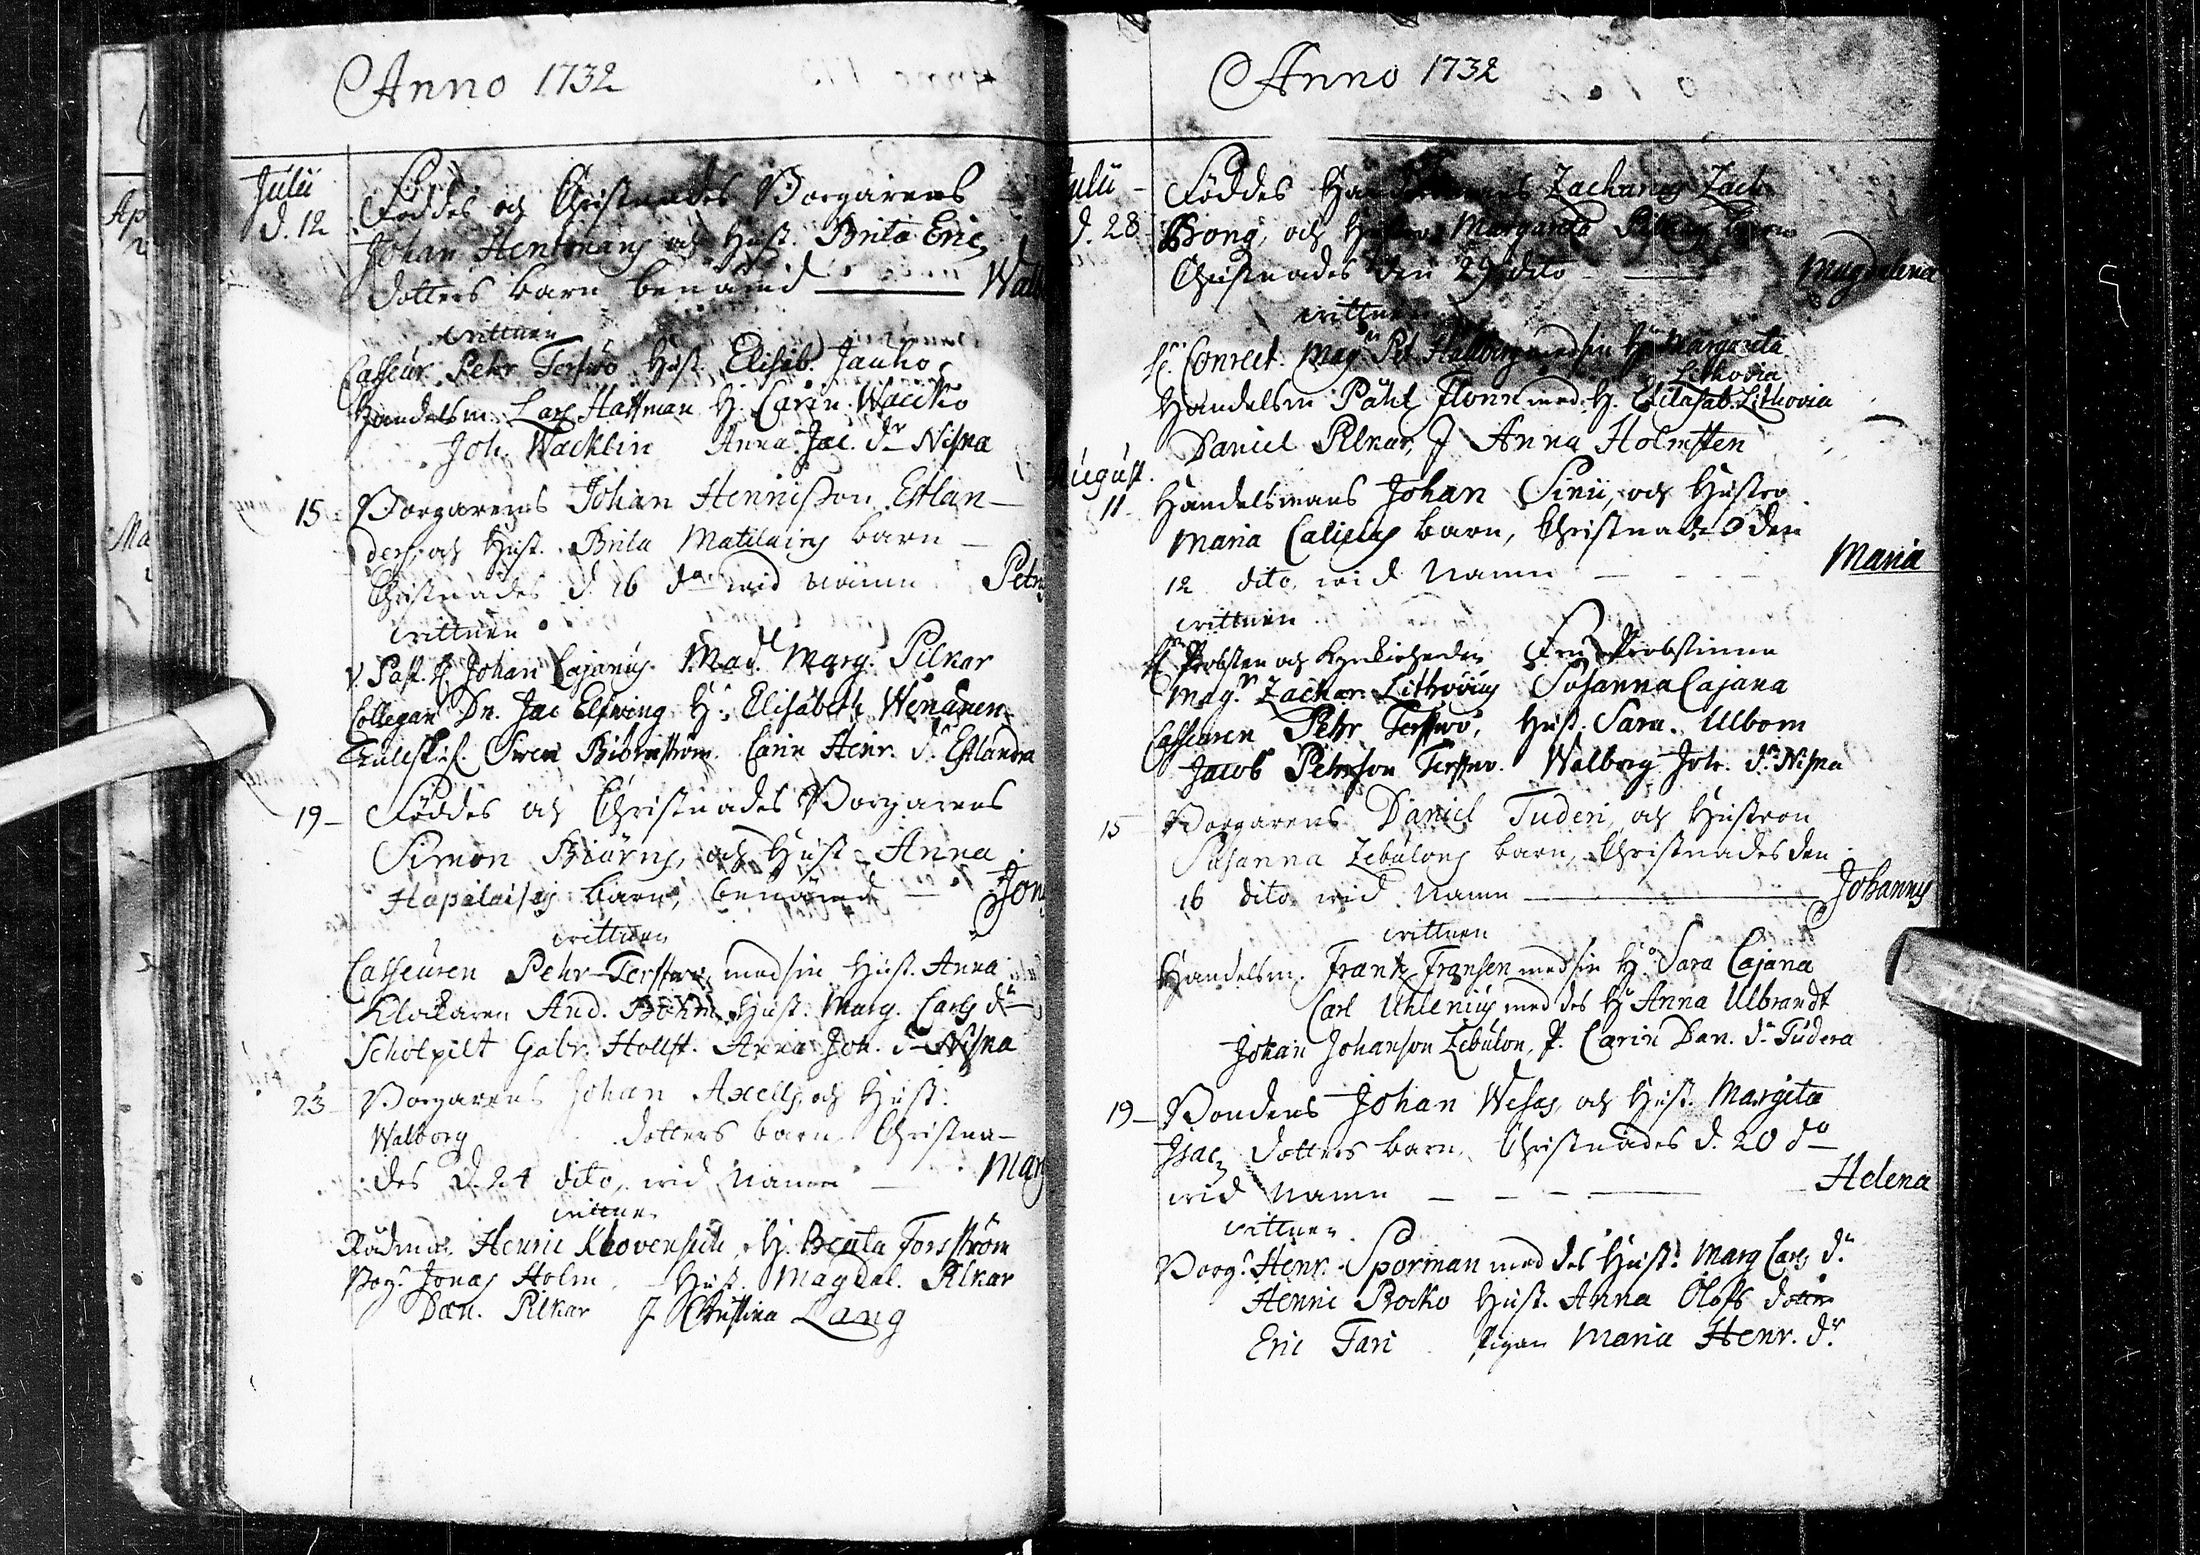 Anno 1732
Julii
d. 12
Föddes och Christnades Borgarens
Johan Hentmans och Hust. Brita Eric
dotters barn benämd
wittnen
Casseur Pehr Terswo Hust. Elisab. Jauho
Handelsm. Lars Hattman H. Carin Wacko
Joh. Wacklin Anna Jac. dr Nisna
15 Borgarens Johan Hennisson Estlan-
ders, och Hust. Brita Matilains barn
Christnades d. 16 do wid namn
wittnen
V. Past. H. Johan Cajanus. Mad. Marg. Pilkar
Collegan Dn. Jac Elfwing H. Elisabeth Wenanen
Sven Biörnström. Carin Henr. dr Estlandra
19 Föddes och Christnades Borgarens
Simon Biörns, och Hust. Anna
Hapalaises barn, benämd
wittnen
Casseuren Pehr Terswo med sin Hust. Anna
Klockaren And. Hust. Marg. Carls dr
Gabr. Hollst. Anna Joh. dr Nisna
23 Borgarens Johan Axells, och Hust.
Walborg dotters barn Christna-
des d. 24 dito, wid namn
wittne
Rådm. Henric H. Beata Forsström
Borg. Jonas Holm Hust. Magdal. Pilkar
Dan. Pilkar J Christina Lang
Anno 1732
d. 28
Föddes Handelsmans Zacharias Zach.
Bong, och Hustru Margareta barn
Christnades den 29 dito Magdelena
wittnen
H. Conrect. Mag. Pet. med sin H. Margareta
Lithovia
Handelsm Påhl med H. Elisab. Lithovia
Daniel Pilkar, J Anna Holmsten
August.
11 Handelsmans Johan och Hustro
Maria Calia barn, Christnades den
12 dito wid Namn Maria
wittnen
H. Probsten och Kyrckioherden Fru Probstinnan
Mag. Zachar. Lithovius Susanna Cajana
Casseuren Pehr Terswo, Hust. Sara Ulbom
Jacob Pehrson Terswo. Walborg Joh. dr Nisna
15 Borgarens Daniel Tuderi, och Hustron
Susanna Zebulons barn, Christnades den
16 dito wid Namn Johannes
wittnen
Handelsm. Frantz Fransen med sin H. Sara Cajana
Carl Uhlenius med des H. Anna Ulbrandt
Johan Johanson Zebulon, P. Carin Dan. dr Tudera
19 Bondens Johan Wesas, och Hust. Margeta
Isac dotters barn, Christnades d. 20 do
wid Namn Helena
wittnen
Borg. Henr. Sporman med des Hust. Marg Carls dr
Henric Bocko Hust. Anna Olofs dotter
Eric Tari Pigan Maria Henr. dr